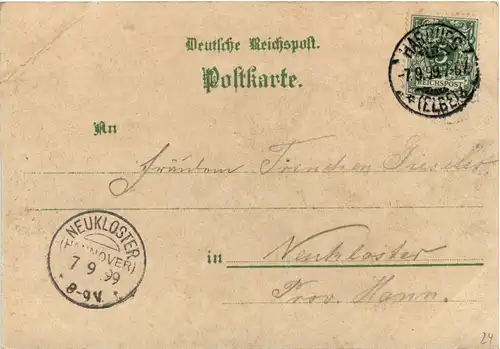 Deutsche Reichspost.
Postkarte.
HARBURG 1
-7.9.99.
* (ELBE) *
5
REICHSPOST
An
Fräulein Trenchen
in Neukloster
Prov. Hann.
NEUKLOSTER
(HANNOVER)
7 9 99
8-9V.
24